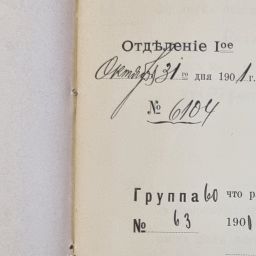 Отдѣленіе Iое
Октября 31го дня 1901 г.
№ 6104
Группа 60 что р
№ 63 1901